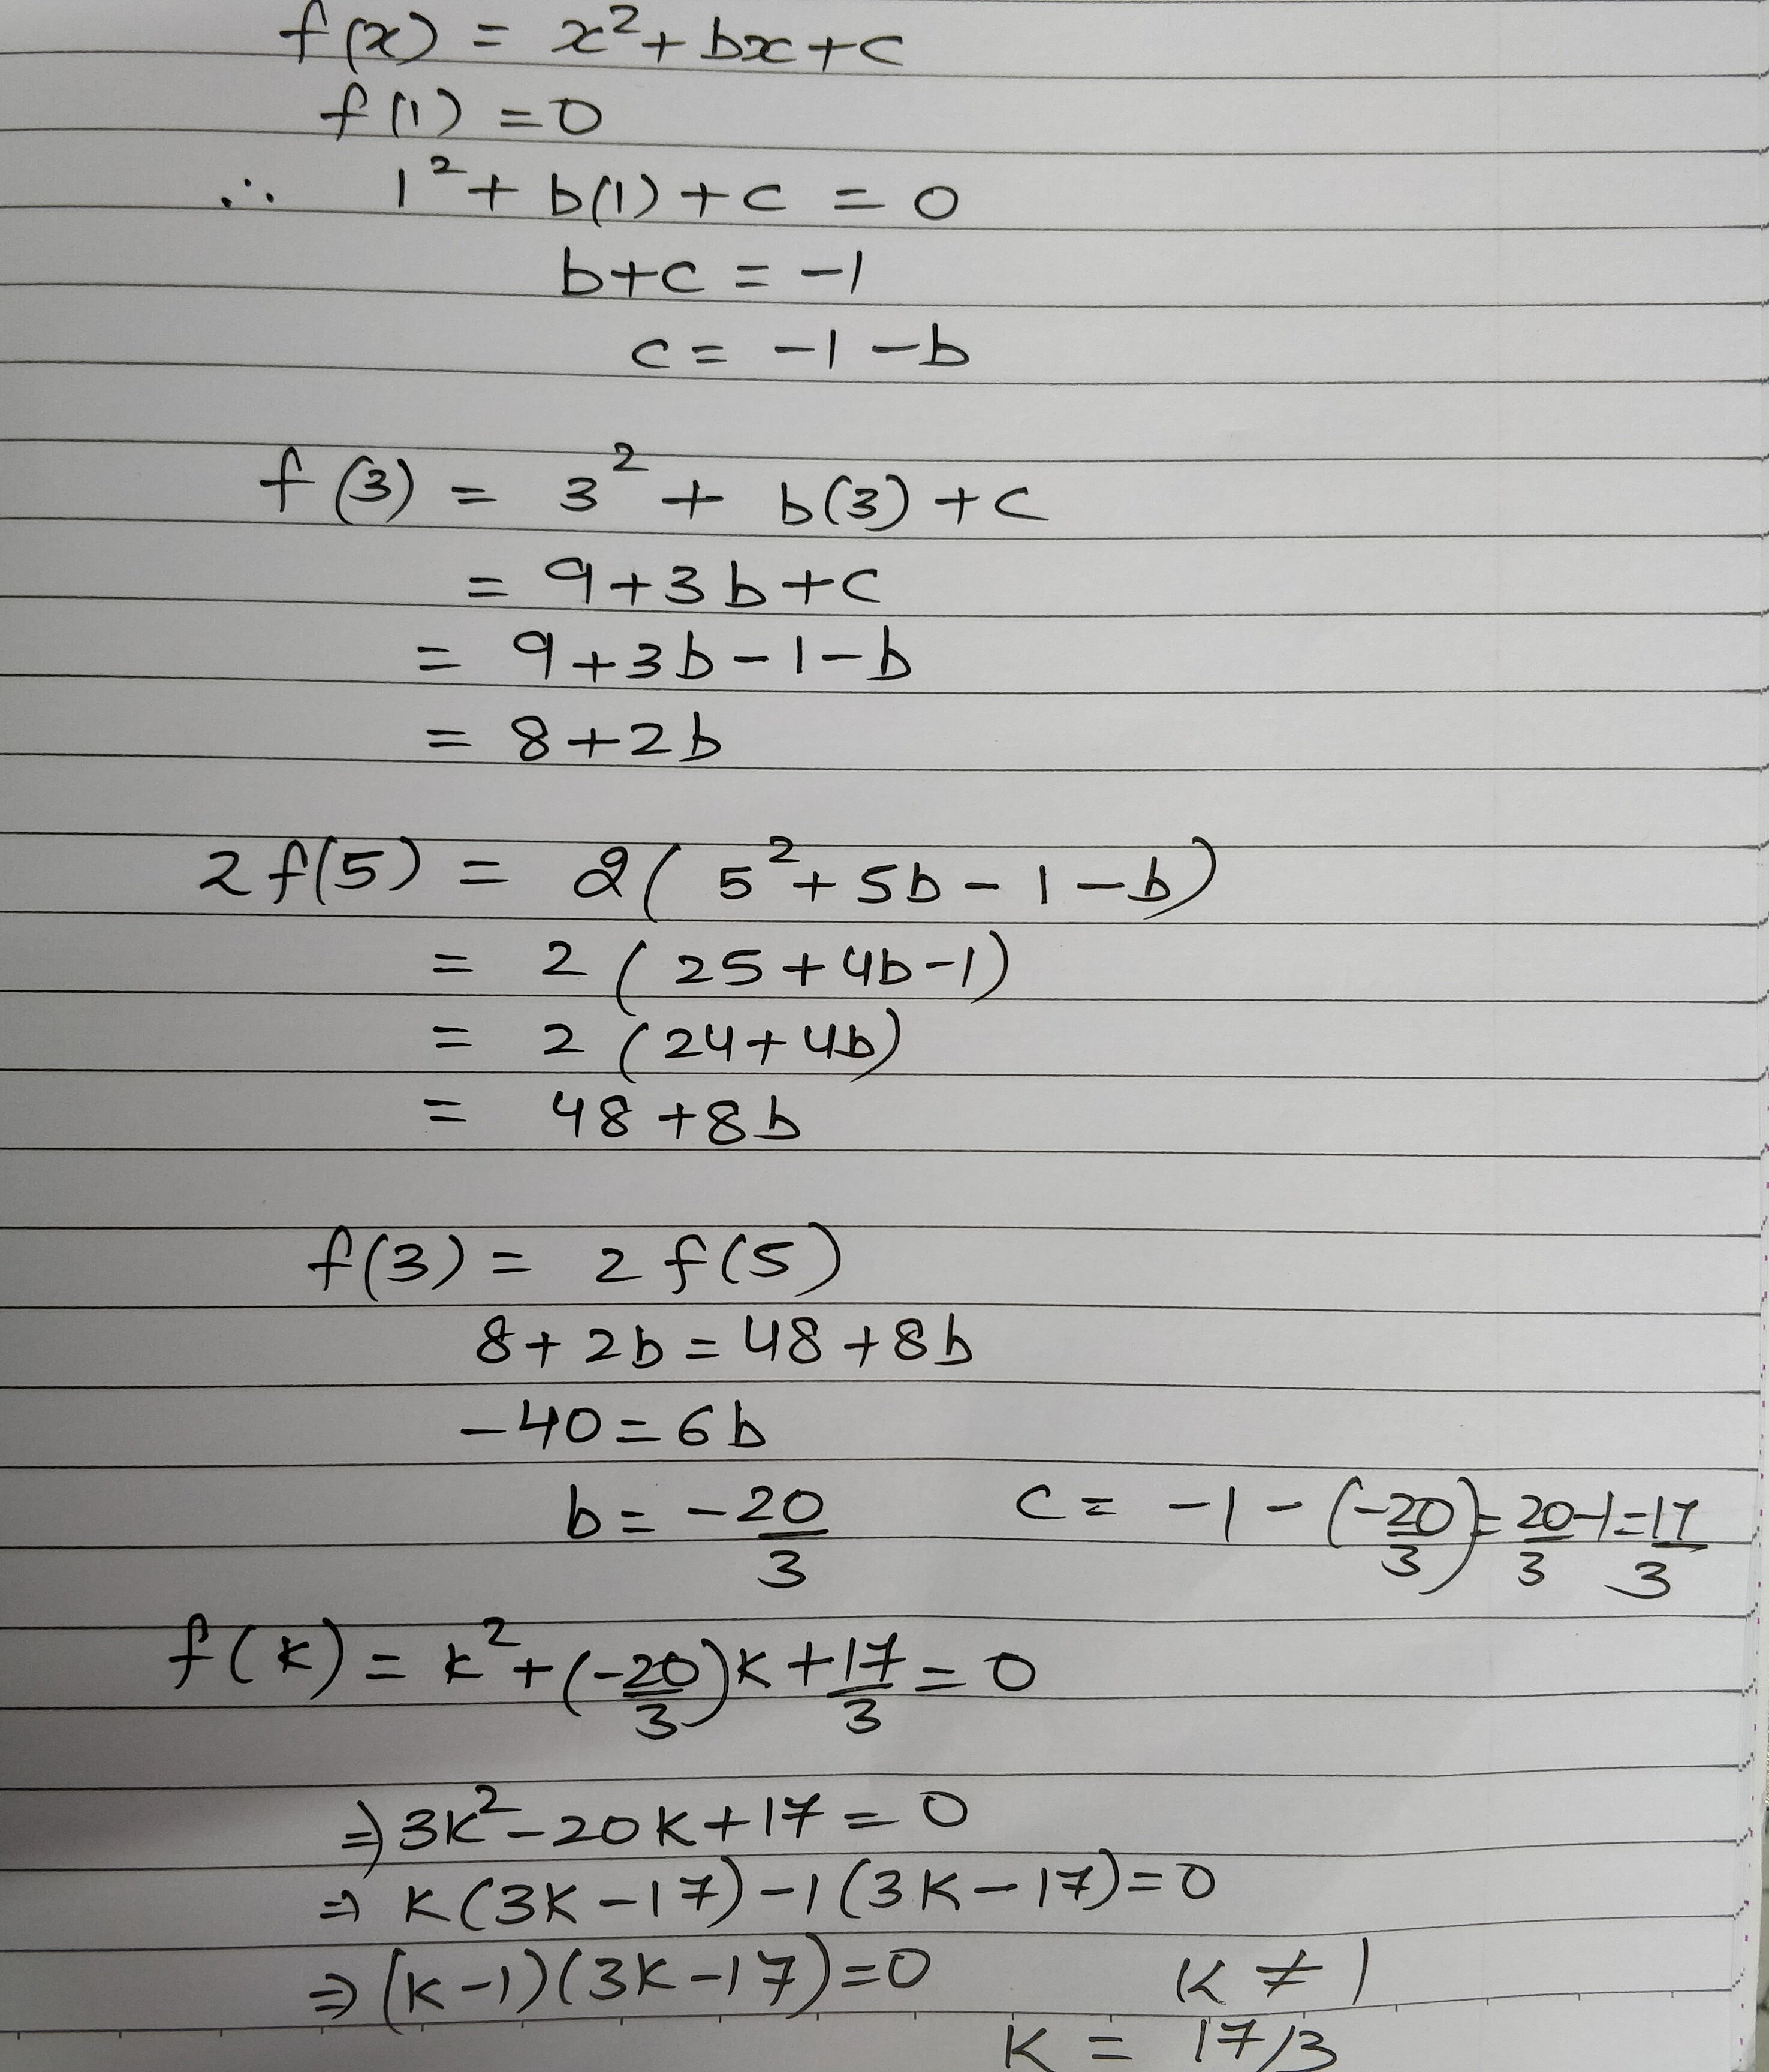 f(x) = x² + bx + c
f(1) = 0
∴ 1² + b(1) + c = 0
b+c = -1
c = -1 - b
f(3) = 3² + b(3) + c
= 9+3b+c
= 9+3b-1-b
= 8+2b
2f(5) = 2(5² + 5b - 1 - b)
= 2(25+4b-1)
= 2(24+4b)
= 48+8b
f(3) = 2f(5)
8+2b = 48+8b
-40 = 6b
b = -20/3 c = -1 - (-20/3) = 20/3 - 1 = 17/3
f(k) = k² + (-20/3)k + 17/3 = 0
⇒ 3k² - 20k + 17 = 0
⇒ k(3k-17) - 1(3k-17) = 0
⇒ (k-1)(3k-17) = 0 k ≠ 1
k = 17/3